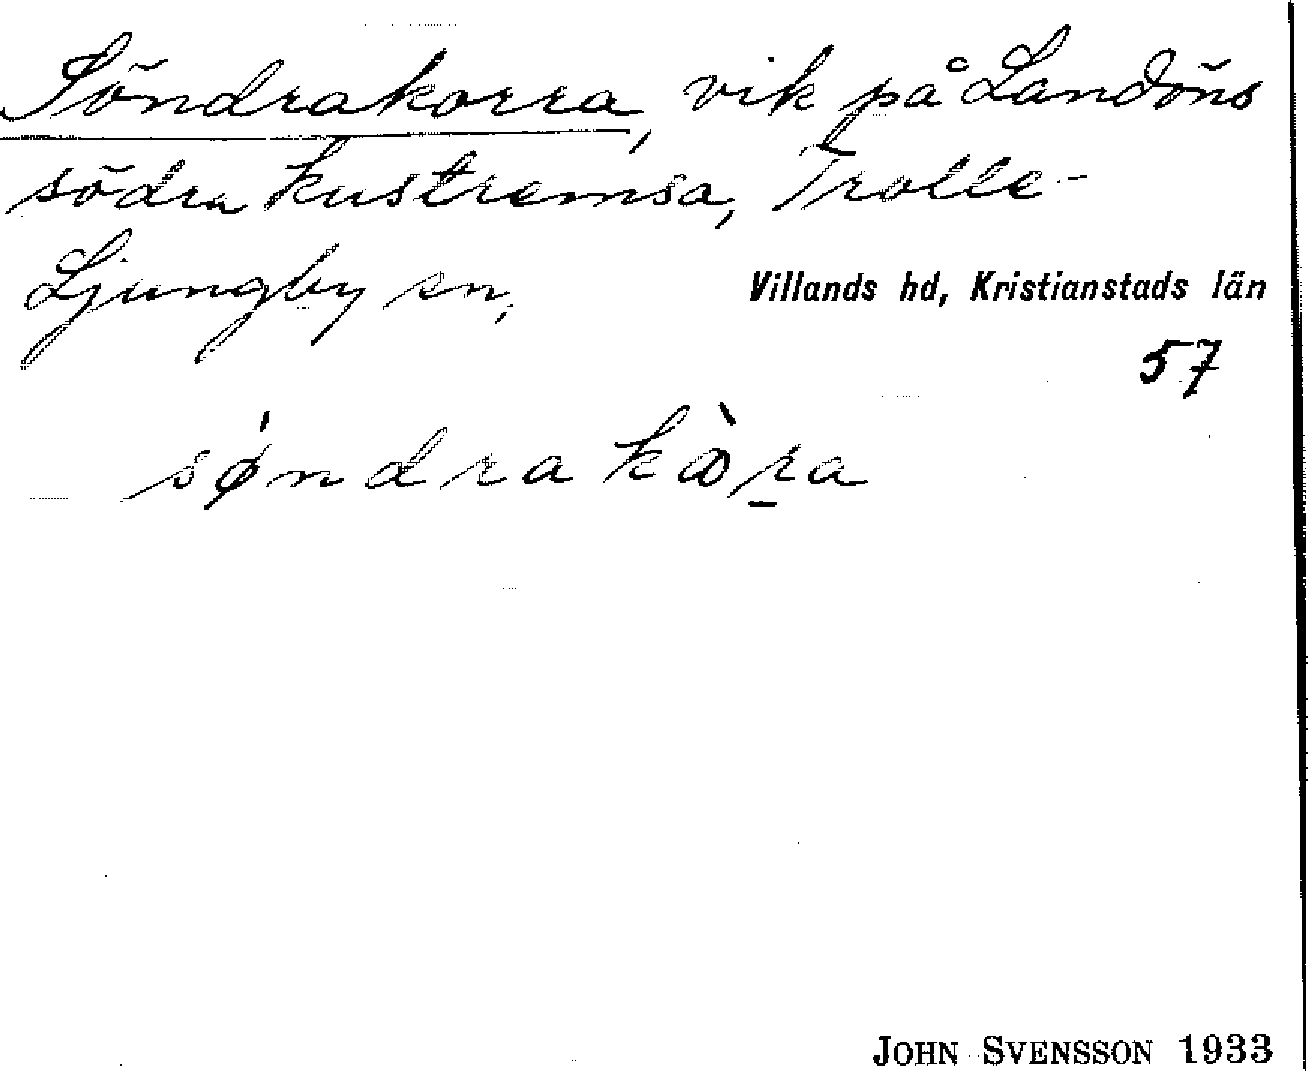 Söndrakorra, vik på Landöns
södra kustremsa, Trolle-
Ljungby sn,
Villands hd, Kristianstads län
57
sǿndra kꝏ̀ṟa
JOHN SVENSSON 1933